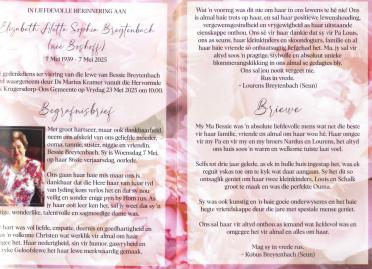 IN LIEFDEVOLLE HERINNERING AAN
Elizabeth Aletta Sophia Breytenbach
(née Boshoff)
7 Mei 1939 - 7 Mei 2025
gedenkdiens ter viering van die lewe van Bessie Breytenbach
waargeneem deur Ds Marius Kramer vanuit die Hervormde
Krugersdorp-Oos Gemeente op Vrydag 23 Mei 2025 om 10:00.
Begrafnisbrief
Met groot hartseer, maar ook dankbaarheid
neem ons afskeid van ons geliefde moeder,
ouma, tannie, suster, niggie en vriendin,
Bessie Breytenbach. Sy is Woensdag 7 Mei,
op haar 86ste verjaarsdag, oorlede.
Ons gaan haar baie mis maar ons is
dankbaar dat die Here haar van haar
lyding kom verlos het en dat sy nou
veilig en sonder enige pyn by Hom rus. As
jy haar ooit leer ken het, sal jy weet dat sy 'n
wonderlike, talentvolle en sagmoedige dame was.
hart was vol liefde, empatie, deernis en goedhartigheid en
'n volkome Christen wat werklik vir almal om haar
gee het. Haar nederigheid, sin vir humor, gasvryheid en
Geloofslewe het haar lewe merkwaardig gemaak.
Wat 'n voorreg was dit nie om haar in ons lewens te hê nie! Ons
is almal baie trots op haar, en sal haar positiewe lewenshouding,
vergewensgesindheid en vrygewigheid as haar uitstaande
eienskappe onthou. Ons sê vir haar dankie dat sy vir Pa Louis,
ons as seuns, haar kleinkinders en skoondogters, familie en al
haar baie vriende só onbaatsugtig liefgehad het. Ma, jy sal vir
altyd soos 'n pragtige, stylvolle en absoluut unieke
blommerangskikking in ons almal se gedagtes bly.
Ons sal jou nooit vergeet nie.
Rus in vrede.
– Lourens Breytenbach (Seun)
Briewe
My Ma Bessie was 'n absolute liefdevolle mens wat net die beste
vir haar familie, vriende en almal om haar wou hê. Haar omgee
vir my Pa en vir my en my broers Nardus en Lourens, het altyd
ons huis soos 'n warm en welkome tuiste laat voel.
Selfs tot drie jaar gelede, as ek in hulle huis ingestap het, was ek
reguit yskas toe om te kyk wat daar aangaan. Sy het dit so
ontsaglik geniet om haar twee kleinkinders, Louis en Schalk
groot te maak en was die perfekte Ouma.
Sy was ook kunstig en 'n baie goeie onderwyseres en het baie
hegte vriendskappe deur die jare met spesiale mense geniet.
Ons sal haar vir altyd onthou as iemand wat liefdevol was en
omgegee het vir almal en alles om haar.
Mag sy in vrede rus.
– Kobus Breytenbach (Seun)